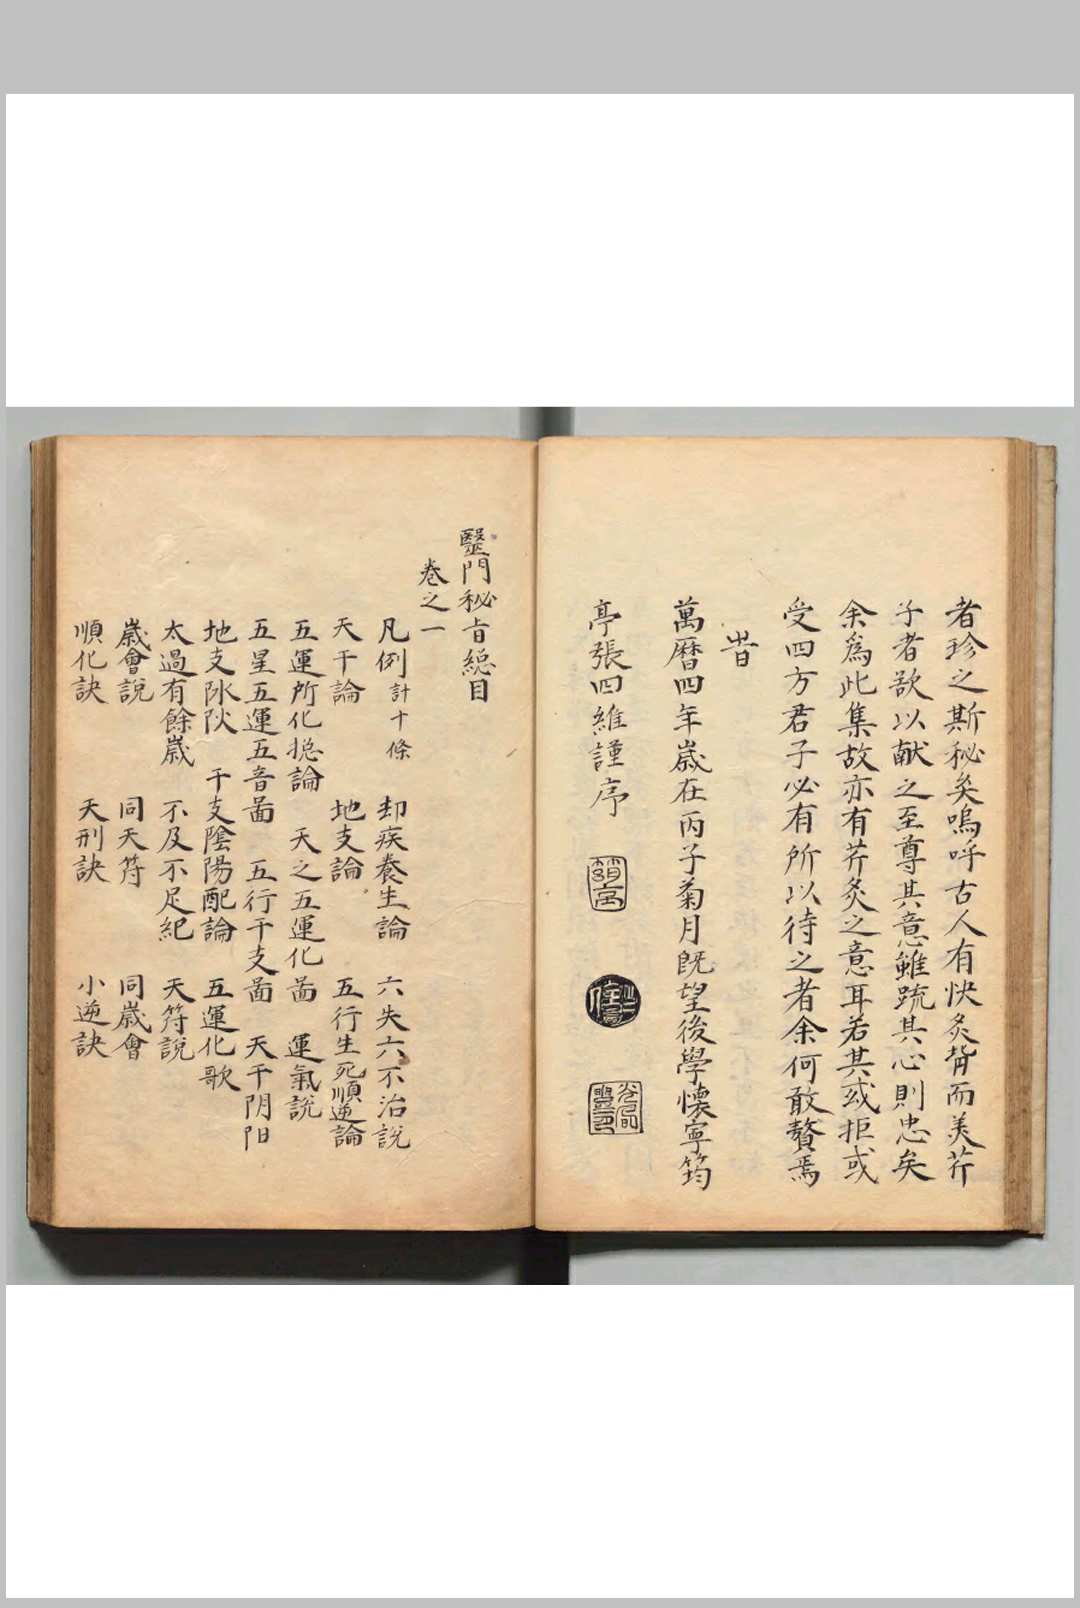 者珍之斯秘矣嗚呼古人有快炙背而美芹
子者欲以献之至尊其意雖疏其心則忠矣
余爲此集故亦有芹炙之意耳若其或拒或
受四方君子必有所以待之者余何敢贅焉
旹
萬曆四年歲在丙子菊月旣望後學懷寧筠
亭張四維謹序
毉門秘旨緫目
卷之一
凡例計十條 却疾養生論 六失六不治說
天干論 地支論 五行生死順逆論
五運所化緫論 天之五運化啚 運氣說
五星五運五音啚 五行干支啚 天干阴阳
地支阥阦 干支陰陽配論 五運化歌
太過有餘歲 不及不足紀 天符說
歲會說 同天符 同歲會
順化訣 天刑訣 小逆訣